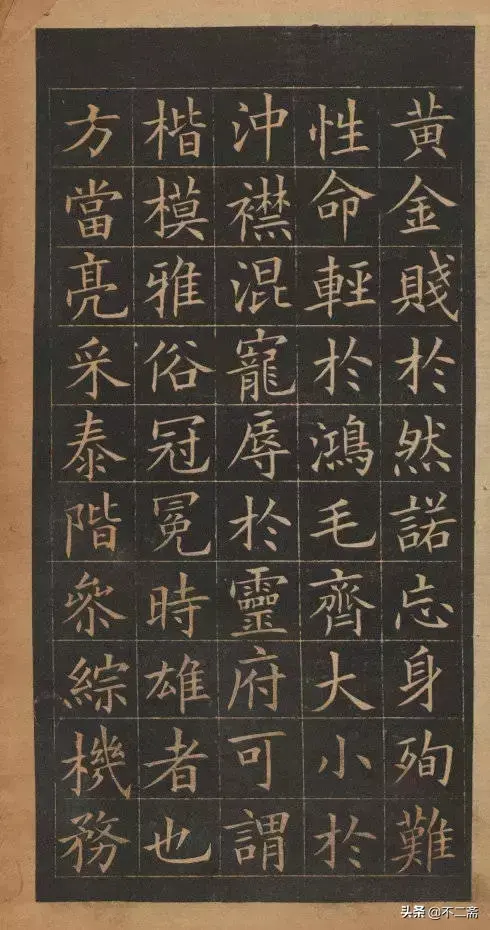 黄金賤於然諾忘身殉難
性命輕於鴻毛齊大小於
沖襟混寵辱於靈府可謂
楷模雅俗冠冕時雄者也
方當亮采泰階叅綜機務
头条 @不二斋